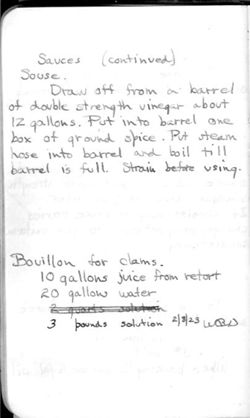 Sauces (continued)
Souse.
Draw off from a barrel
of double strength vinegar about
12 gallons. Put into barrel one
box of ground spice. Put steam
hose into barrel and boil till
barrel is full. Strain before using.
Bouillon for clams.
10 gallons juice from retort
20 gallow water
2 quarts solution
3 pounds solution 2/8/23